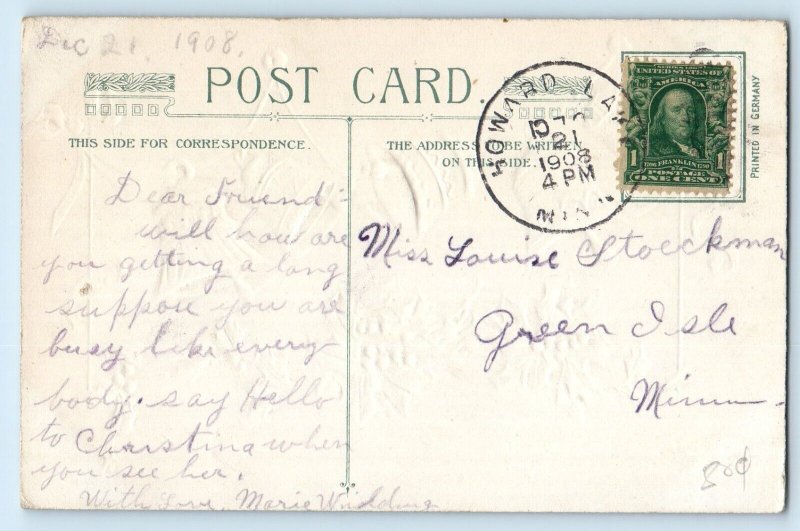 Dec 21, 1908.
POST CARD.
THIS SIDE FOR CORRESPONDENCE.
THE ADDRESS TO BE WRITTEN
ON THIS SIDE.
HOWARD LAKE
DEC
21
1908
4 PM
MINN.
UNITED STATES OF
AMERICA
1 FRANKLIN 1
POSTAGE
ONE CENT
PRINTED IN GERMANY
Dear Friend:-
will how are
you getting a long
suppose you are
busy like every
body. say Hello
to Christina when
you see her.
With Love, Marie
Miss Louise Stoeckman
Green Isle
Minn